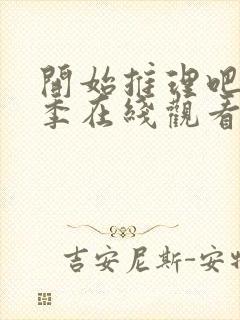 開始推理吧
季在綫觀看
吉安尼斯-安特